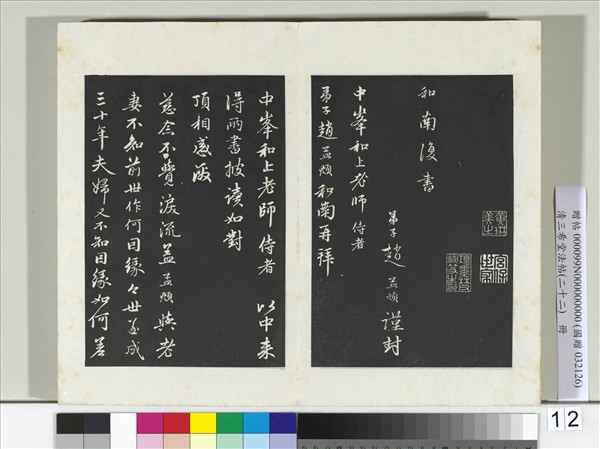 和南復書
中峯和上老師侍者
弟子趙孟頫謹封
弟子趙孟頫和南再拜
中峯和上老師侍者 以中来
得所書披讀如對
頂相感激
慈念不覺淚流盖孟頫與老
妻不知前世作何因緣今世遂成
三十年夫婦又不知因緣如何差
贈帖 000099N000000000 (國贈 032126)
清三希堂法帖(二十二) 冊
12